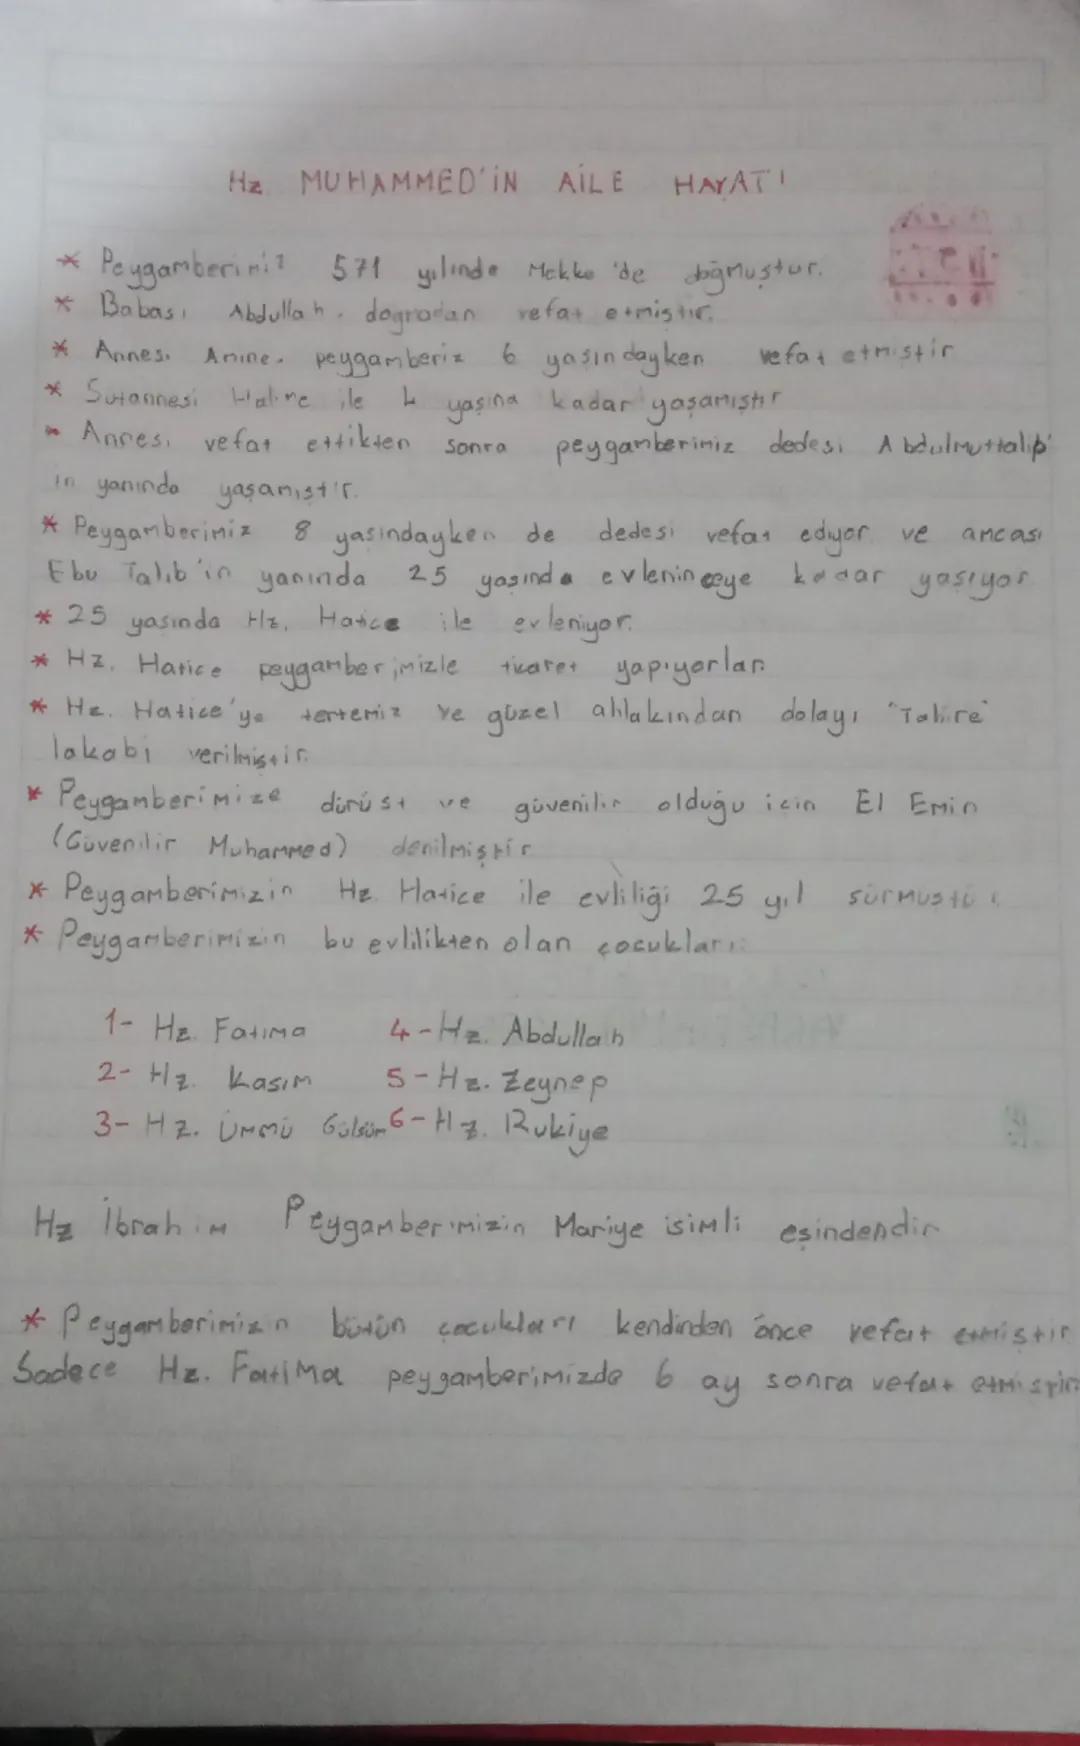 Hz MUHAMMED'İN AİLE HAYATI
* Peygamberimiz 571 yılında Mekke'de doğmuştur.
* Babası Abdullah, dogmadan vefat etmiştir.
* Annesi Amine, peygamberiz 6 yaşındayken vefat etmiştir
* Sütannesi Halime ile 4 yaşına kadar yaşamıştır
* Annesi vefat ettikten sonra peygamberimiz dedesi Abdulmuttalip'
in yanında yaşamıştır.
* Peygamberimiz 8 yaşındayken de dedesi vefat ediyor ve amcası
Ebu Talib'in yanında 25 yaşında evlenineeye kadar yaşıyor
* 25 yaşında Hz. Hatice ile evleniyor.
* Hz. Hatice peygamberimizle ticaret yapıyorlar.
* Hz. Hatice'ye tertemiz ve güzel ahlakından dolayı "Tahire"
lakabı verilmiştir.
* Peygamberimize dürüst ve güvenilir olduğu için El Emin
(Güvenilir Muhammed) denilmiştir
* Peygamberimizin Hz. Hatice ile evliliği 25 yıl sürmüştür
* Peygamberimizin bu evlilikten olan çocukları:
1- Hz. Fatıma 4-Hz. Abdullah
2- Hz. Kasım 5-Hz. Zeynep
3- Hz. Ümmü Gülsüm 6-Hz. Rukiye
Hz İbrahim Peygamberimizin Mariye isimli eşindendir
* Peygamberimizin bütün çocukları kendinden önce vefat etmiştir
Sadece Hz. Fatima peygamberimizde 6 ay sonra vefat etmiştir